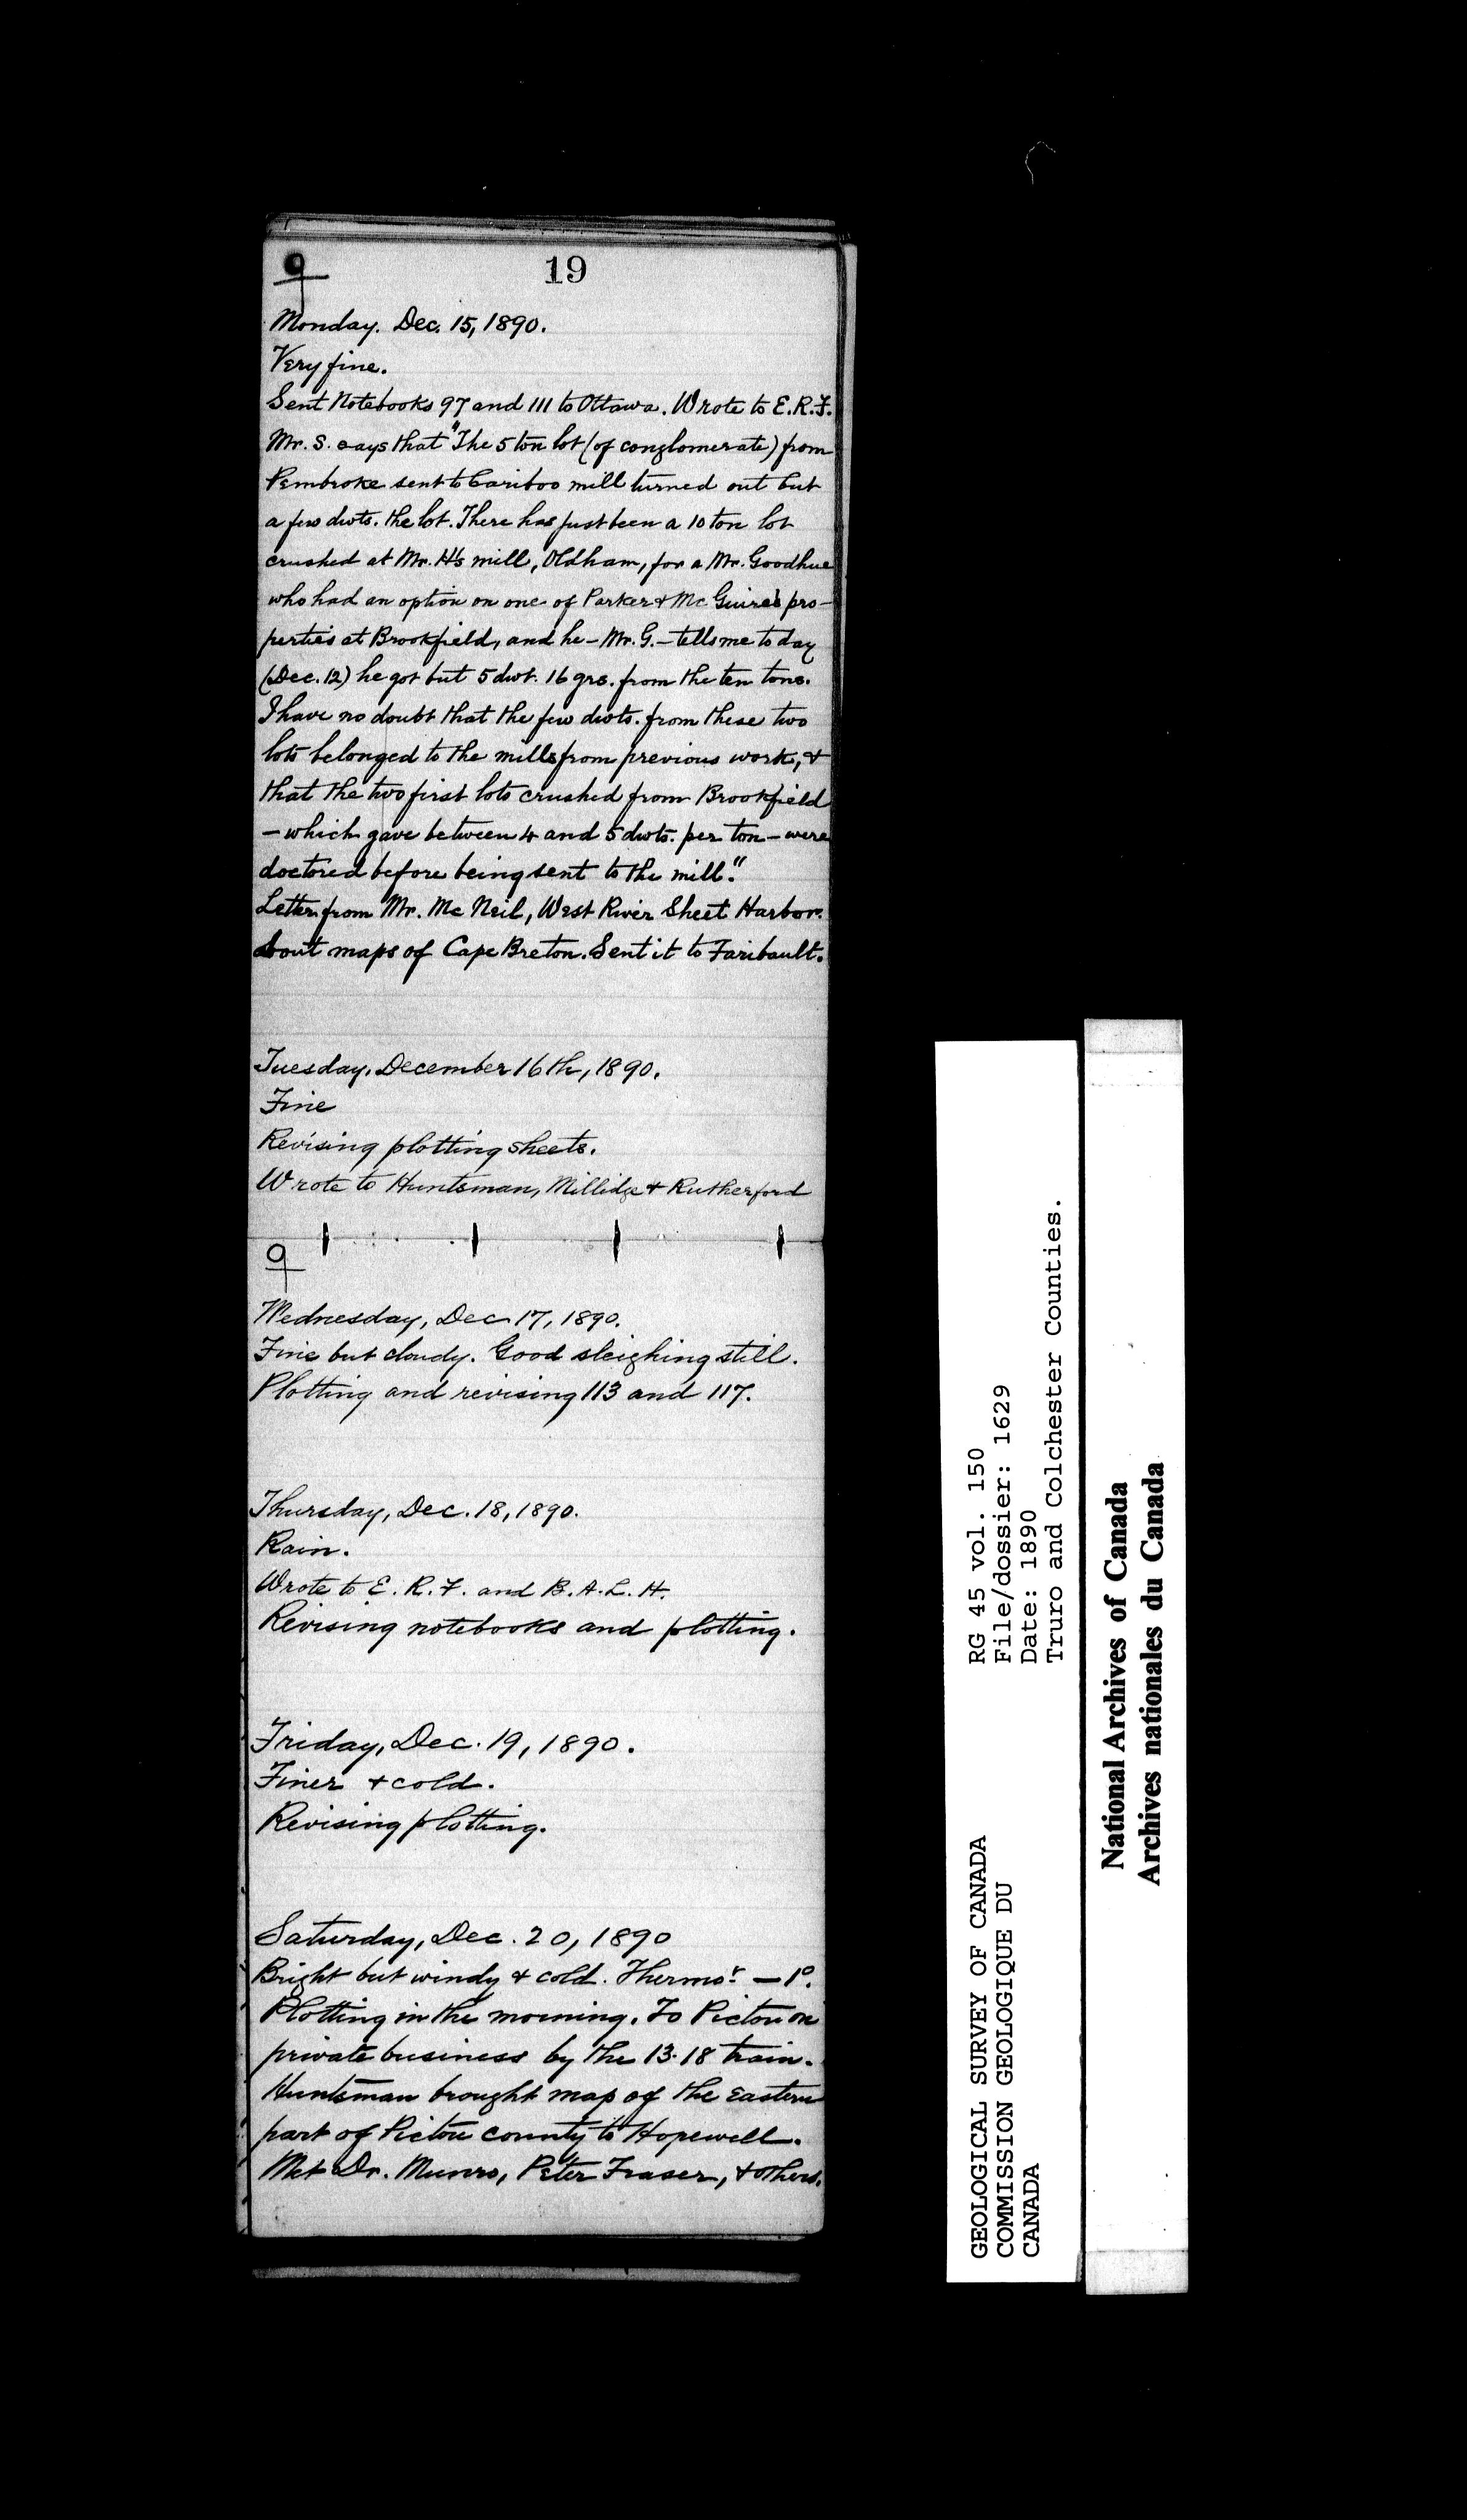 9
19
Monday. Dec. 15, 1890.
Very fine.
Sent Notebooks 97 and 111 to Ottawa. Wrote to E.R.F.
Mr. S. says that "The 5 ton lot (of conglomerate) from
Pembroke sent to Cariboo mill turned out but
a few dwts. the lot. There has just been a 10 ton lot
crushed at Mr. H's mill, Oldham, for a Mr. Goodhue
who had an option on one of Parker & McGuire's pro-
perties at Brookfield, and he - Mr. G. - tells me today
(Dec. 12) he got but 5 dwt. 16 grs. from the ten tons.
I have no doubt that the few dwts. from these two
lots belonged to the mills from previous work, &
that the two first lots crushed from Brookfield
- which gave between 4 and 5 dwts. per ton - were
doctored before being sent to the mill."
Letter from Mr. McNeil, West River Sheet Harbor.
about maps of Cape Breton. Sent it to Faribault.
Tuesday, December 16th, 1890.
Fine
Revising plotting sheets.
Wrote to Huntsman, Millidge & Rutherford
9
Wednesday, Dec 17, 1890.
Fine but cloudy. Good sleighing still.
Plotting and revising 113 and 117.
Thursday, Dec. 18, 1890.
Rain.
Wrote to E. R. F. and B. A. L. H.
Revising notebooks and plotting.
Friday, Dec. 19, 1890.
Finer & cold.
Revising plotting.
Saturday, Dec. 20, 1890
Bright but windy & cold. Thermor. - 1°.
Plotting in the morning. To Pictou on
private business by the 13.18 train.
Huntsman brought map of the eastern
part of Pictou county to Hopewell.
Met Dr. Munro, Peter Fraser, & others.
GEOLOGICAL SURVEY OF CANADA
COMMISSION GEOLOGIQUE DU
CANADA
RG 45 vol. 150
File/dossier: 1629
Date: 1890
Truro and Colchester Counties.
National Archives of Canada
Archives nationales du Canada